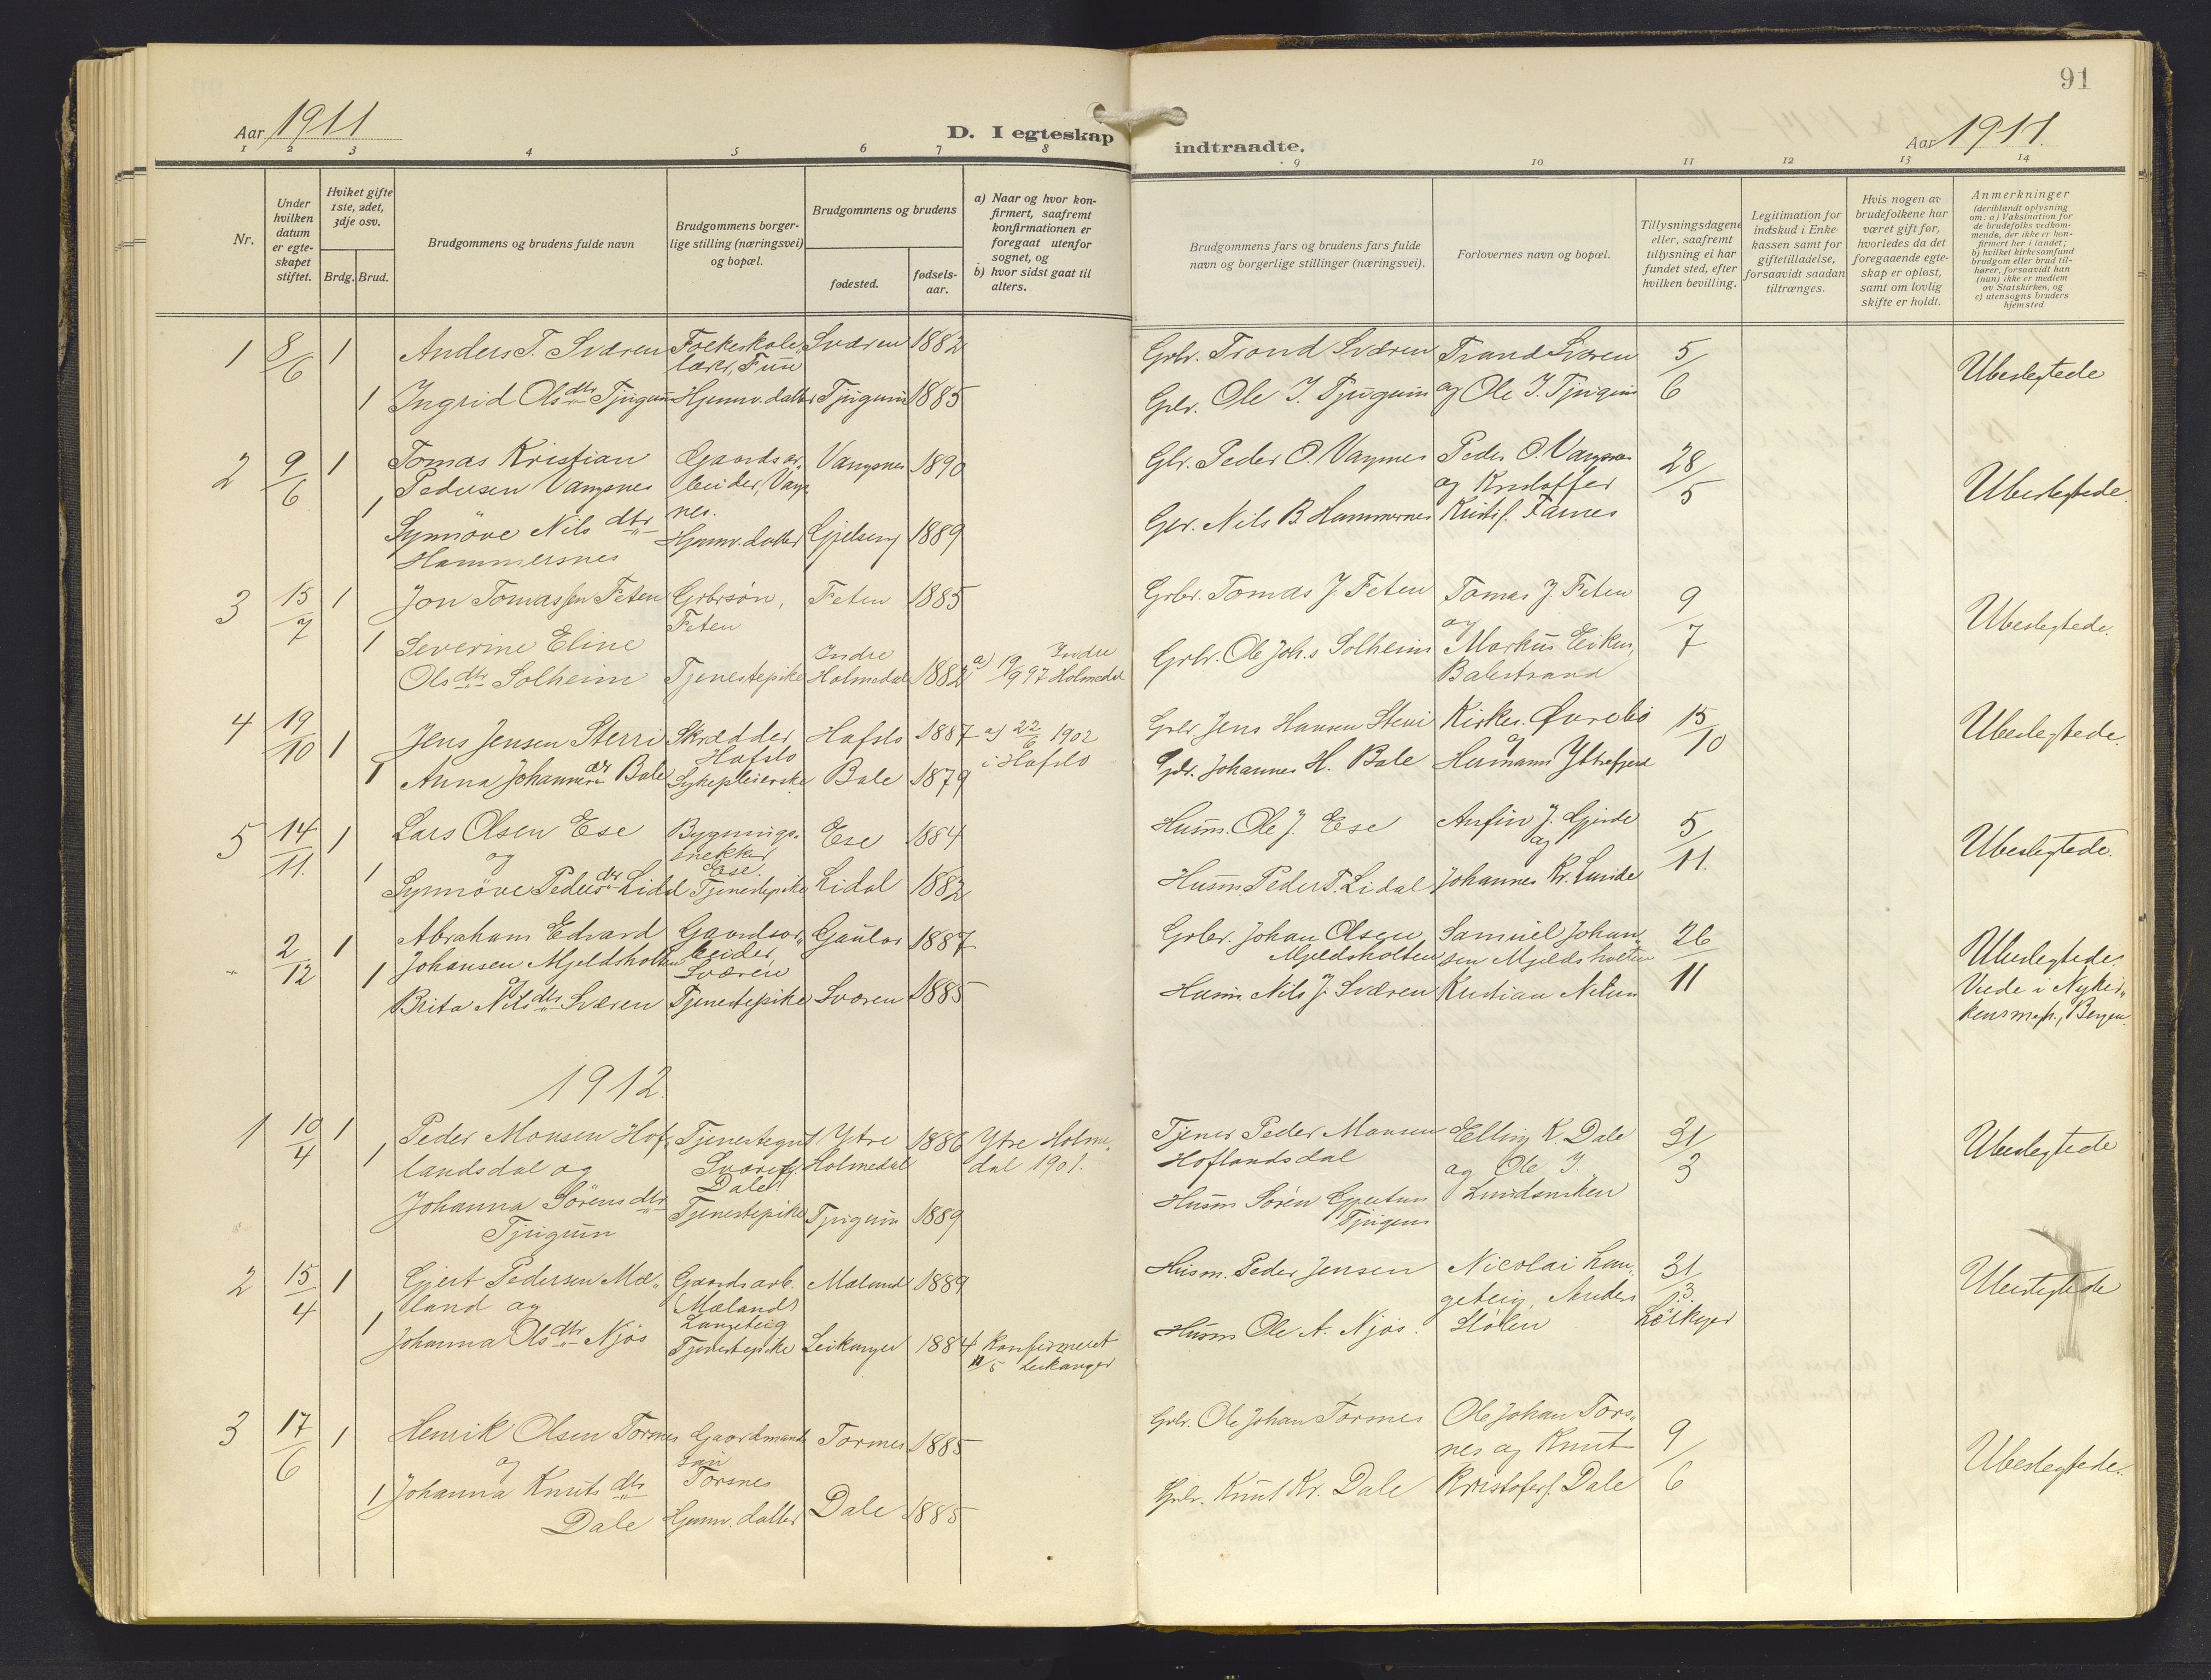 91
Aar 1911
D. I egteskap
indtraadte.
Aar 1911.
1 2 3 4 5 6 7 8 9 10 11 12 13 14
Nr.
Under hvilken datum er egte-skapet stiftet.
Hviket gifte 1ste, 2det, 3dje osv.
Brdg. Brud.
Brudgommens og brudens fulde navn
Brudgommens borger-
lige stilling (næringsvei)
og bopæl.
Brudgommens og brudens
fødested.
fødsels-
aar.
a) Naar og hvor kon-
firmert, saafremt
konfirmationen er
foregaat utenfor
sognet, og
b) hvor sidst gaat til
alters.
Brudgommens fars og brudens fars fulde
navn og borgerlige stillinger (næringsvei).
Forlovernes navn og bopæl.
Tillysningsdagene
eller, saafremt
tillysning ei har
fundet sted, efter
hvilken bevilling.
Legitimation for
indskud i Enke-
kassen samt for
giftetilladelse,
forsaavidt saadan
tiltrænges.
Hvis nogen av
brudefolkene har
været gift før,
hvorledes da det
foregaaende egte-
skap er opløst,
samt om lovlig
skifte er holdt.
Anmerkninger
(deriblandt oplysning
om: a) Vaksination for
de brudefolks vedkom-
mende, der ikke er kon-
firmert her i landet;
b) hvilket kirkesamfund
brudgom eller brud til-
hører, forsaavidt han
(hun) ikke er medlem
av Statskirken, og
c) utensogns bruders
hjemsted
1 8/6 1 Anders T. Sværen Folkeskole- Sværen 1882 Grbr. Trond Sværen Trond Sværen 5/6 Ubeslegtede
lærer,
1 Ingrid Olsdtr Tjugum Hjemv. datter Tjugum 1885 Grbr. Ole J. Tjugum og Ole J. Tjugum
2 9/6 1 Tomas Kristian Gaardsar- Vangsnes 1890 Gbr. Peder O. Vangsnes Peder O. Vangsnes 28/5 Ubeslegtede.
1 Pedersen Vangsnes beider, Vangs- og Kristoffer
nes.
Synnöve Nilsdtr Hjemv. datter 1889 Gbr. Nils B. Hammersnes Kristif. Farnes
Hammersnes
3 15/7 1 Jon Tomassen Feten Grbrsön, Feten 1885 Grbr. Tomas J. Feten Tomas J. Feten 9/7 Ubeslegtede.
Feten og
1 Severine Eline Indre Indre
Olsdtr Solheim Tjenestepike Holmedal 1882 a) 19/9 97 Holmedal Grbr. Ole Joh.s Solheim Markus Eiken,
Balestrand
4 19/10 1 Jens Jensen Sterri Skrædder Hafslo 1887 a) 22/6 1902 Grbr. Jens Hansen Sterri Kirkes. Øvrebö 15/10 Ubeslegtede.
Hafslo i Hafslo og
1 Anna Johannesdtr Bale Sykepleierske Bale 1879 Gbr. Johannes H. Bale Hermann Yttrefjord
5 14/11. 1 Lars Olsen Ese Bygnings- Ese 1884 Husm. Ole J. Ese Anfin J. Gjerde 5/11. Ubeslegtede.
og snekker, og
Ese.
1 Synnöve Pedersdtr Lidal Tjenestepike Lidal 1882 Husm. Peder T. Lidal Johannes Kr. Lunde
2/12 1 Abraham Edvard Gaardsar- Gaular 1887 Grbr. Johan Olsen Samuel Johan- 26/11 Ubeslegtede.
1 Johansen Mjeldsholten beider, Mjeldsholten sen Mjeldsholten Viede i Nykir-
og Sværen
Brita Nilsdtr Sværen Tjenestepike Sværen 1885 Husm. Nils J. Sværen Kristian Nilsen kens mgh., Bergen.
1912.
1 10/4 1 Peder Monsen Hof- Tjenestegut Ytre 1886 Ytre Holme- Tjener Peder Monsen Elling K. Dale 31/3 Ubeslegtede
1 landsdal og Holmedal dal 1901. Hoflandsdal og Ole J.
Dale.
Johanna Sörensdtr Tjenestepike Tjugum 1889 Husm Sören Gjertsen
Tjugum Tjugum
2 15/4 1 Gjert Pedersen Mæ- Gaardsarb. Mæland 1889 Husm. Peder Jensen Nicolai Lan- 31/3. Ubeslegtede
land og Mæland geteig, Anders
Langeteig Leikanger
1 Johanna Olsdtr Njös Tjenestepike Leikanger 1884 Konfirmeret Husm Ole A. Njös. Stölen
11/5 Leikanger
3 17/6 1 Henrik Olsen Torsnes Gaardmands Torsnes 1885 Grbr. Ole Johan Torsnes Ole Johan Tors- 9/6 Ubeslegtede.
og sön nes og Knut
Torsnes
1 Johanna Knutsdtr Hjemv. datter Dale 1885 Grbr. Knut Kr. Dale Kristofers. Dale
Dale